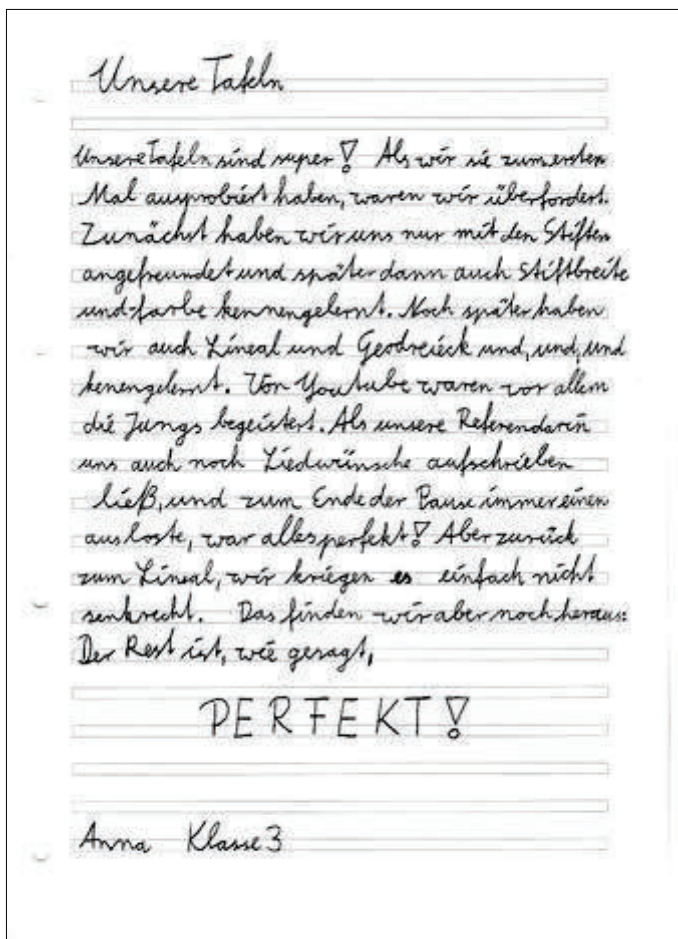 Unsere Tafeln
Unsere Tafeln sind super! Als wir sie zum ersten
Mal ausprobiert haben, waren wir überfordert.
Zunächst haben wir uns nur mit den Stiften
angefreundet und später dann auch Stiftbreite
und -farbe kennengelernt. Noch später haben
wir auch Lineal und Geodreieck und, und, und
kenengelernt. Von Youtube waren vor allem
die Jungs begeistert. Als unsere Referendarin
uns auch noch Liedwünsche aufschrieben
ließ, und zum Ende der Pause immer einen
ausloste, war alles perfekt! Aber zurück
zum Lineal, wir kriegen es einfach nicht
senkrecht. Das finden wir aber noch heraus.
Der Rest ist, wie gesagt,
PERFEKT!
Anna Klasse 3